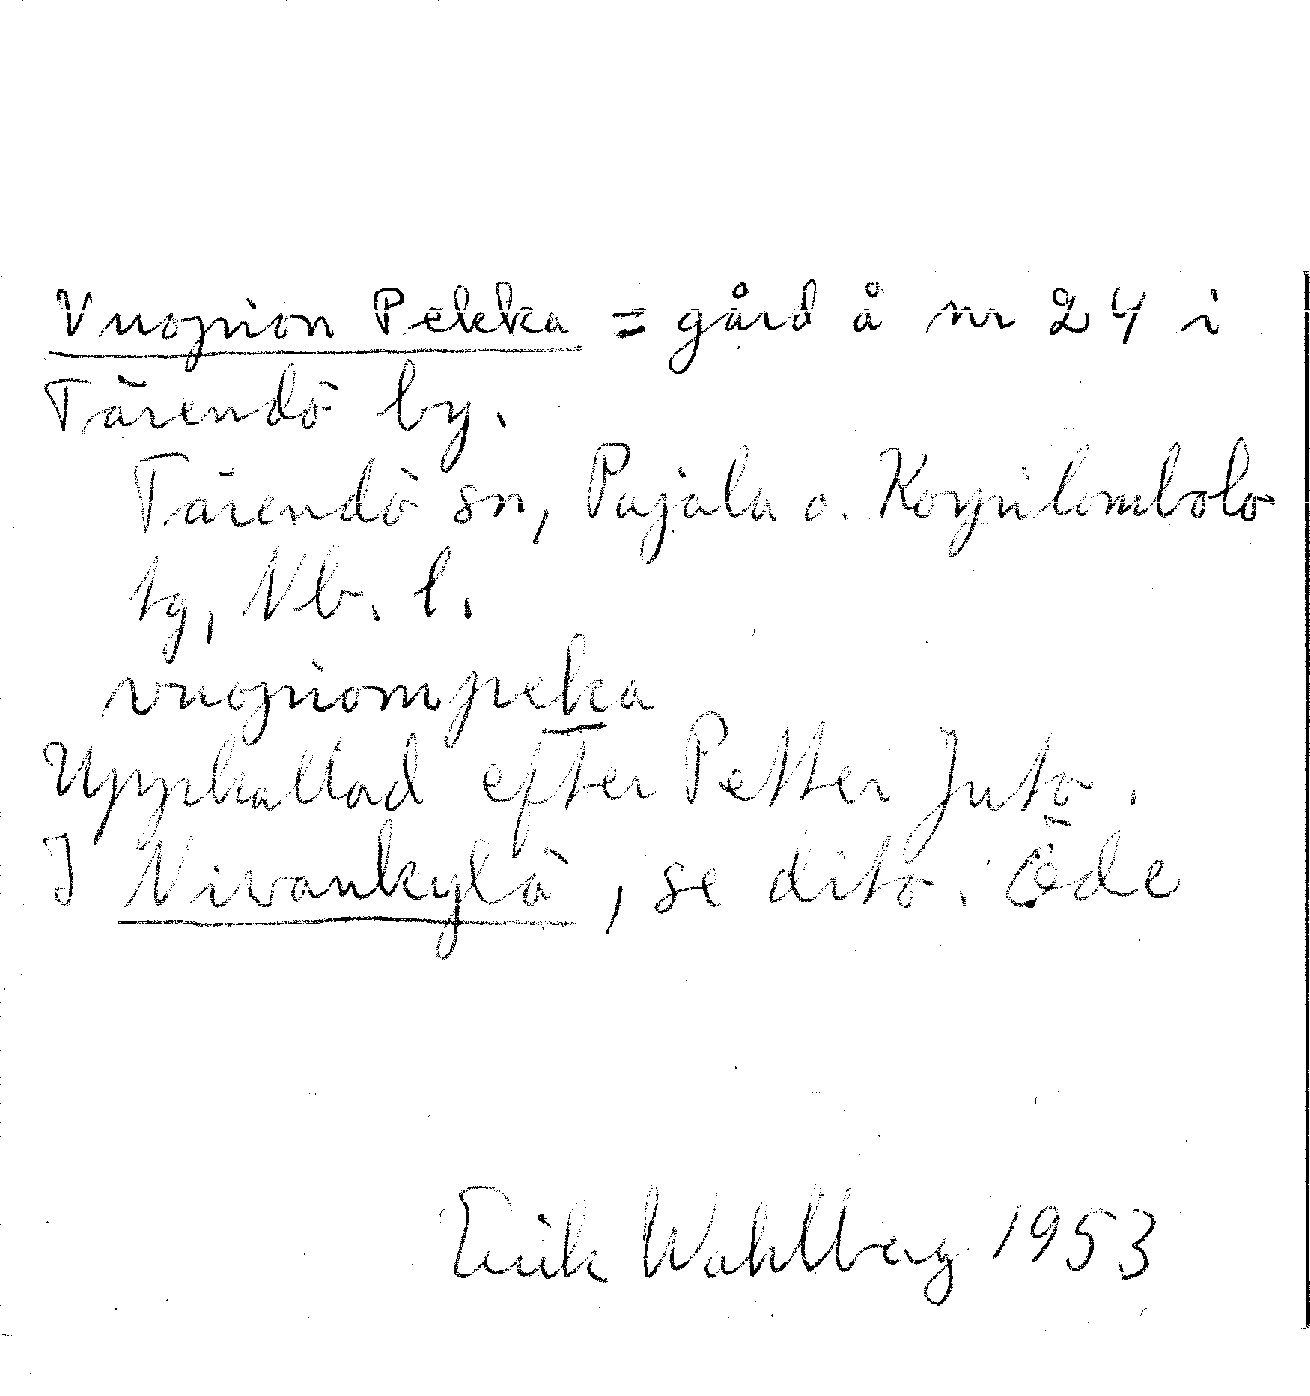 Vuopion Pekka = gård å nr 24 i
Tärendö by.
Tärendö sn, Pajala o. Korpilombolo
tg, Nb. l.
vuopiompeka
Uppkallad efter Petter Juto.
I Nivankylä, se dito. Öde
Erik Wahlberg 1953